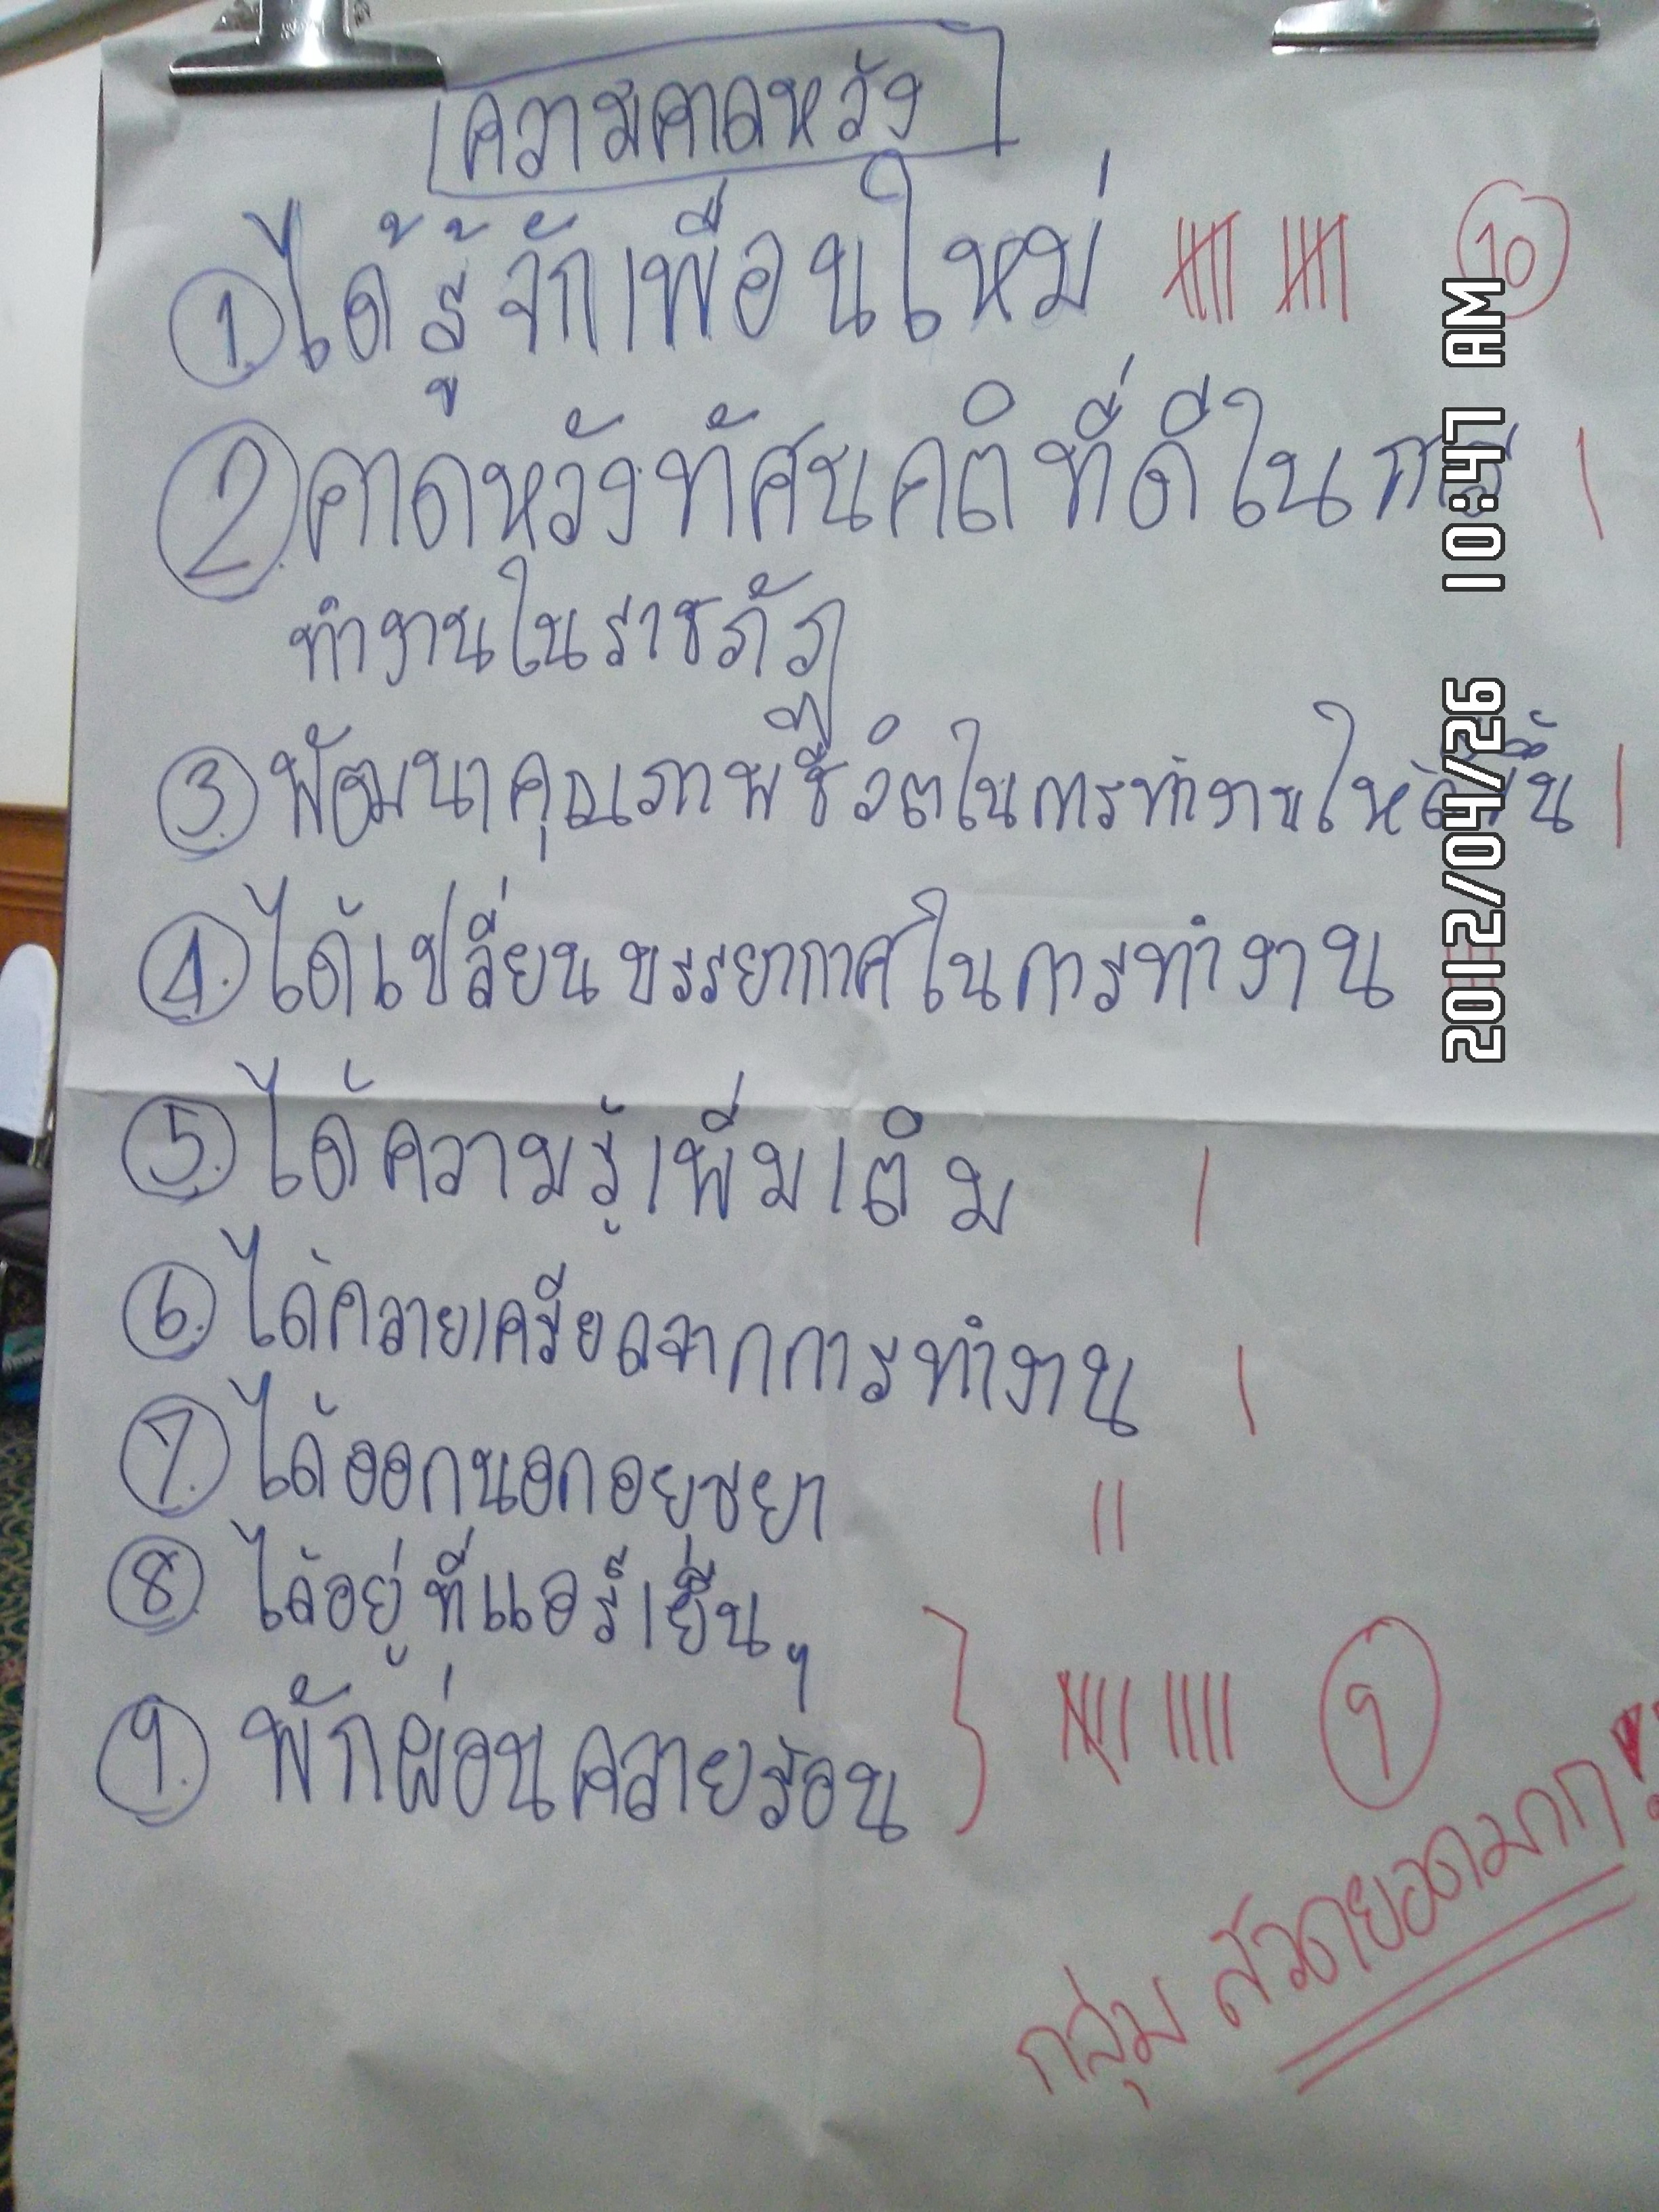 ความคาดหวัง
1. ได้รู้จักเพื่อนใหม่ 10
2. คาดหวังทัศนคติที่ดีในการ
ทำงานในราชภัฏ
3. พัฒนาคุณภาพชีวิตในการทำงานให้ดีขึ้น
4. ได้เปลี่ยนบรรยากาศในการทำงาน
5. ได้ความรู้เพิ่มเติม
6. ได้คลายเครียดจากการทำงาน
7. ได้ออกนอกอยุธยา
8. ได้อยู่ที่แอร์เย็นๆ
9. พักผ่อนคลายร้อน 9
กลุ่ม สวดยอดมาก!!
2012/04/26 10:47 AM